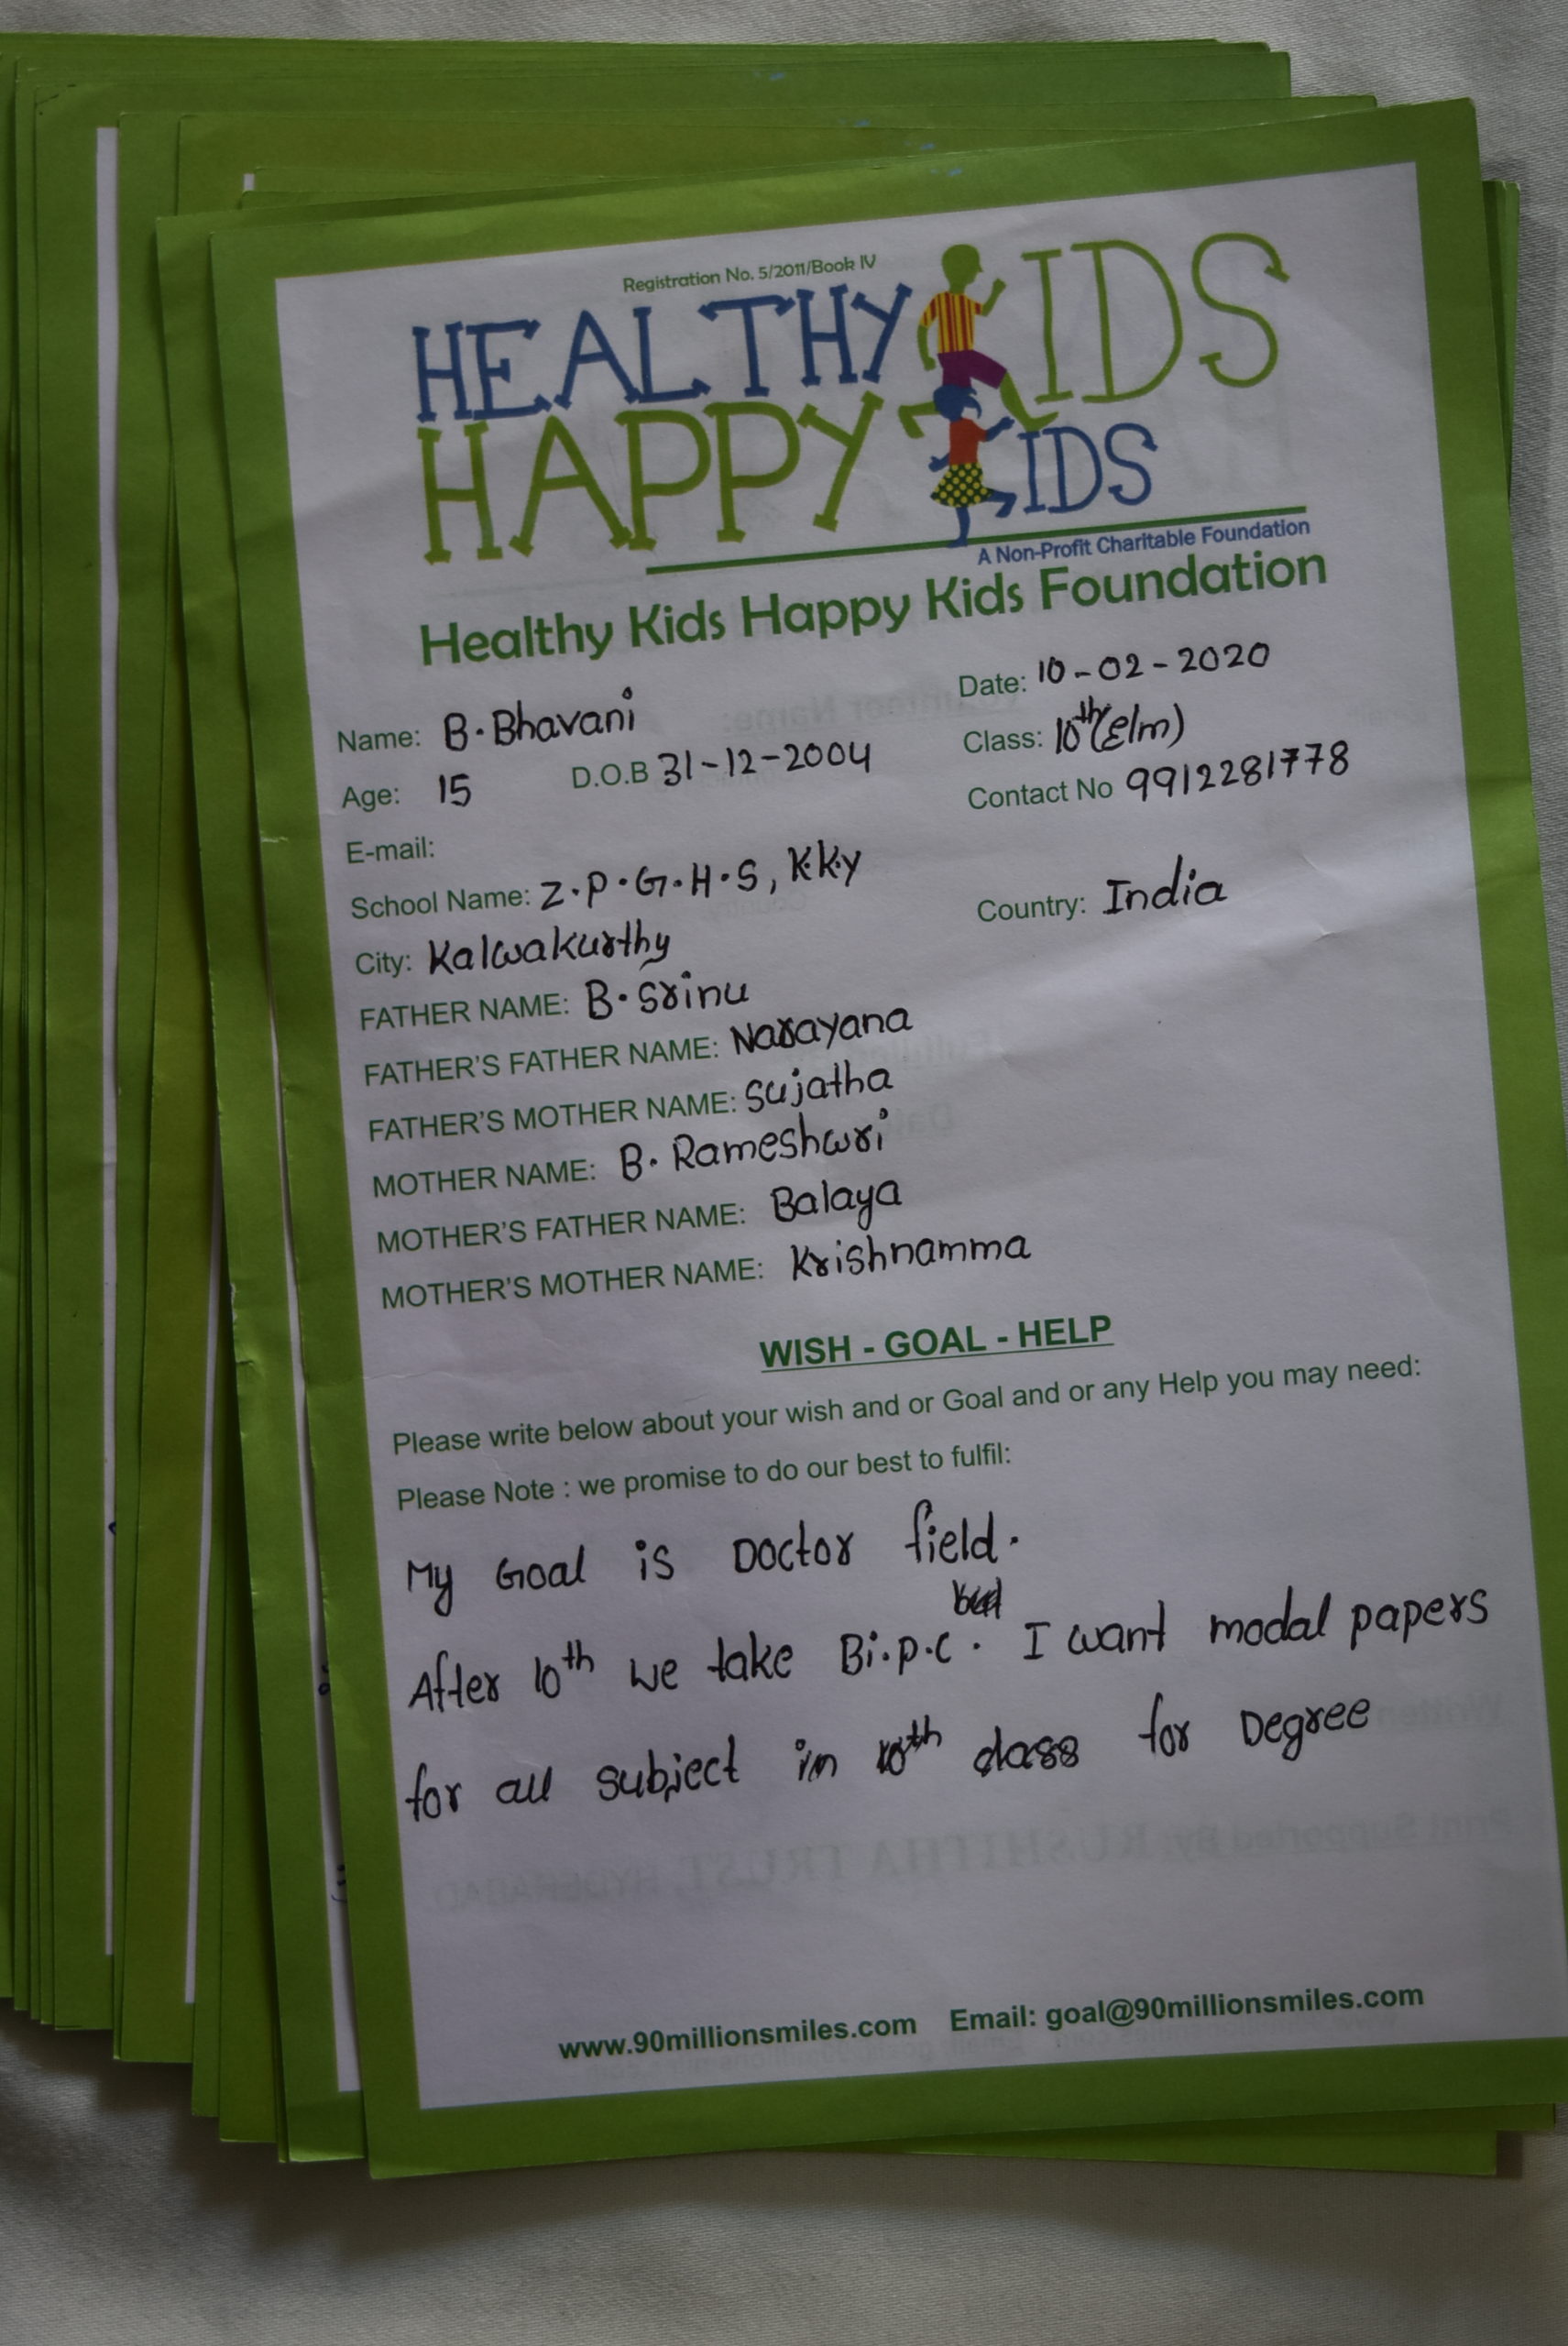 Registration No. 5/2011/Book IV
HEALTHY KIDS
HAPPY KIDS
A Non-Profit Charitable Foundation
Healthy Kids Happy Kids Foundation
Date: 10-02-2020
Name: B. Bhavani
Class: 10th (E/m)
Age: 15 D.O.B 31-12-2004
Contact No 9912281778
E-mail:
School Name: Z.P.G.H.S, K.K.y
City: Kalwakurthy
Country: India
FATHER NAME: B. Srinu
FATHER'S FATHER NAME: Narayana
FATHER'S MOTHER NAME: Sujatha
MOTHER NAME: B. Rameshwri
MOTHER'S FATHER NAME: Balaya
MOTHER'S MOTHER NAME: Krishnamma
WISH - GOAL - HELP
Please write below about your wish and or Goal and or any Help you may need:
Please Note : we promise to do our best to fulfil:
My Goal is Doctor field.
After 10th we take Bi.p.c. I want modal papers
for all subject in 10th class for Degree
www.90millionsmiles.com Email: goal@90millionsmiles.com